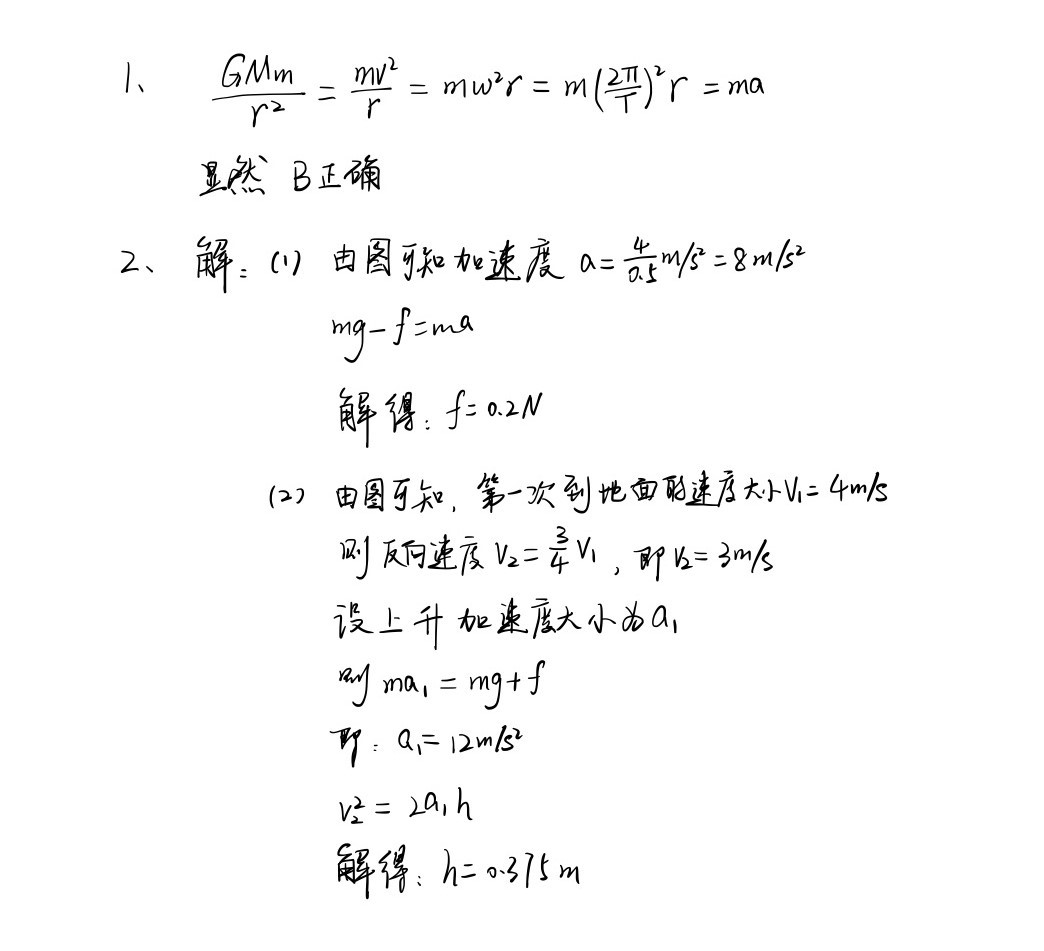 1、 GMm/r² = mv²/r = mw²r = m(2π/T)²r = ma
显然 B正确
2、 解: (1) 由图可知加速度 a=4/0.5 m/s²=8m/s²
mg-f=ma
解得: f=0.2N
(2) 由图可知, 第一次到地面的速度大小V₁=4m/s
则反向速度V₂=3/4 V₁, 即V₂=3m/s
设上升加速度大小为a₁
则ma₁=mg+f
即: a₁=12m/s²
V₂²=2a₁h
解得: h=0.375m